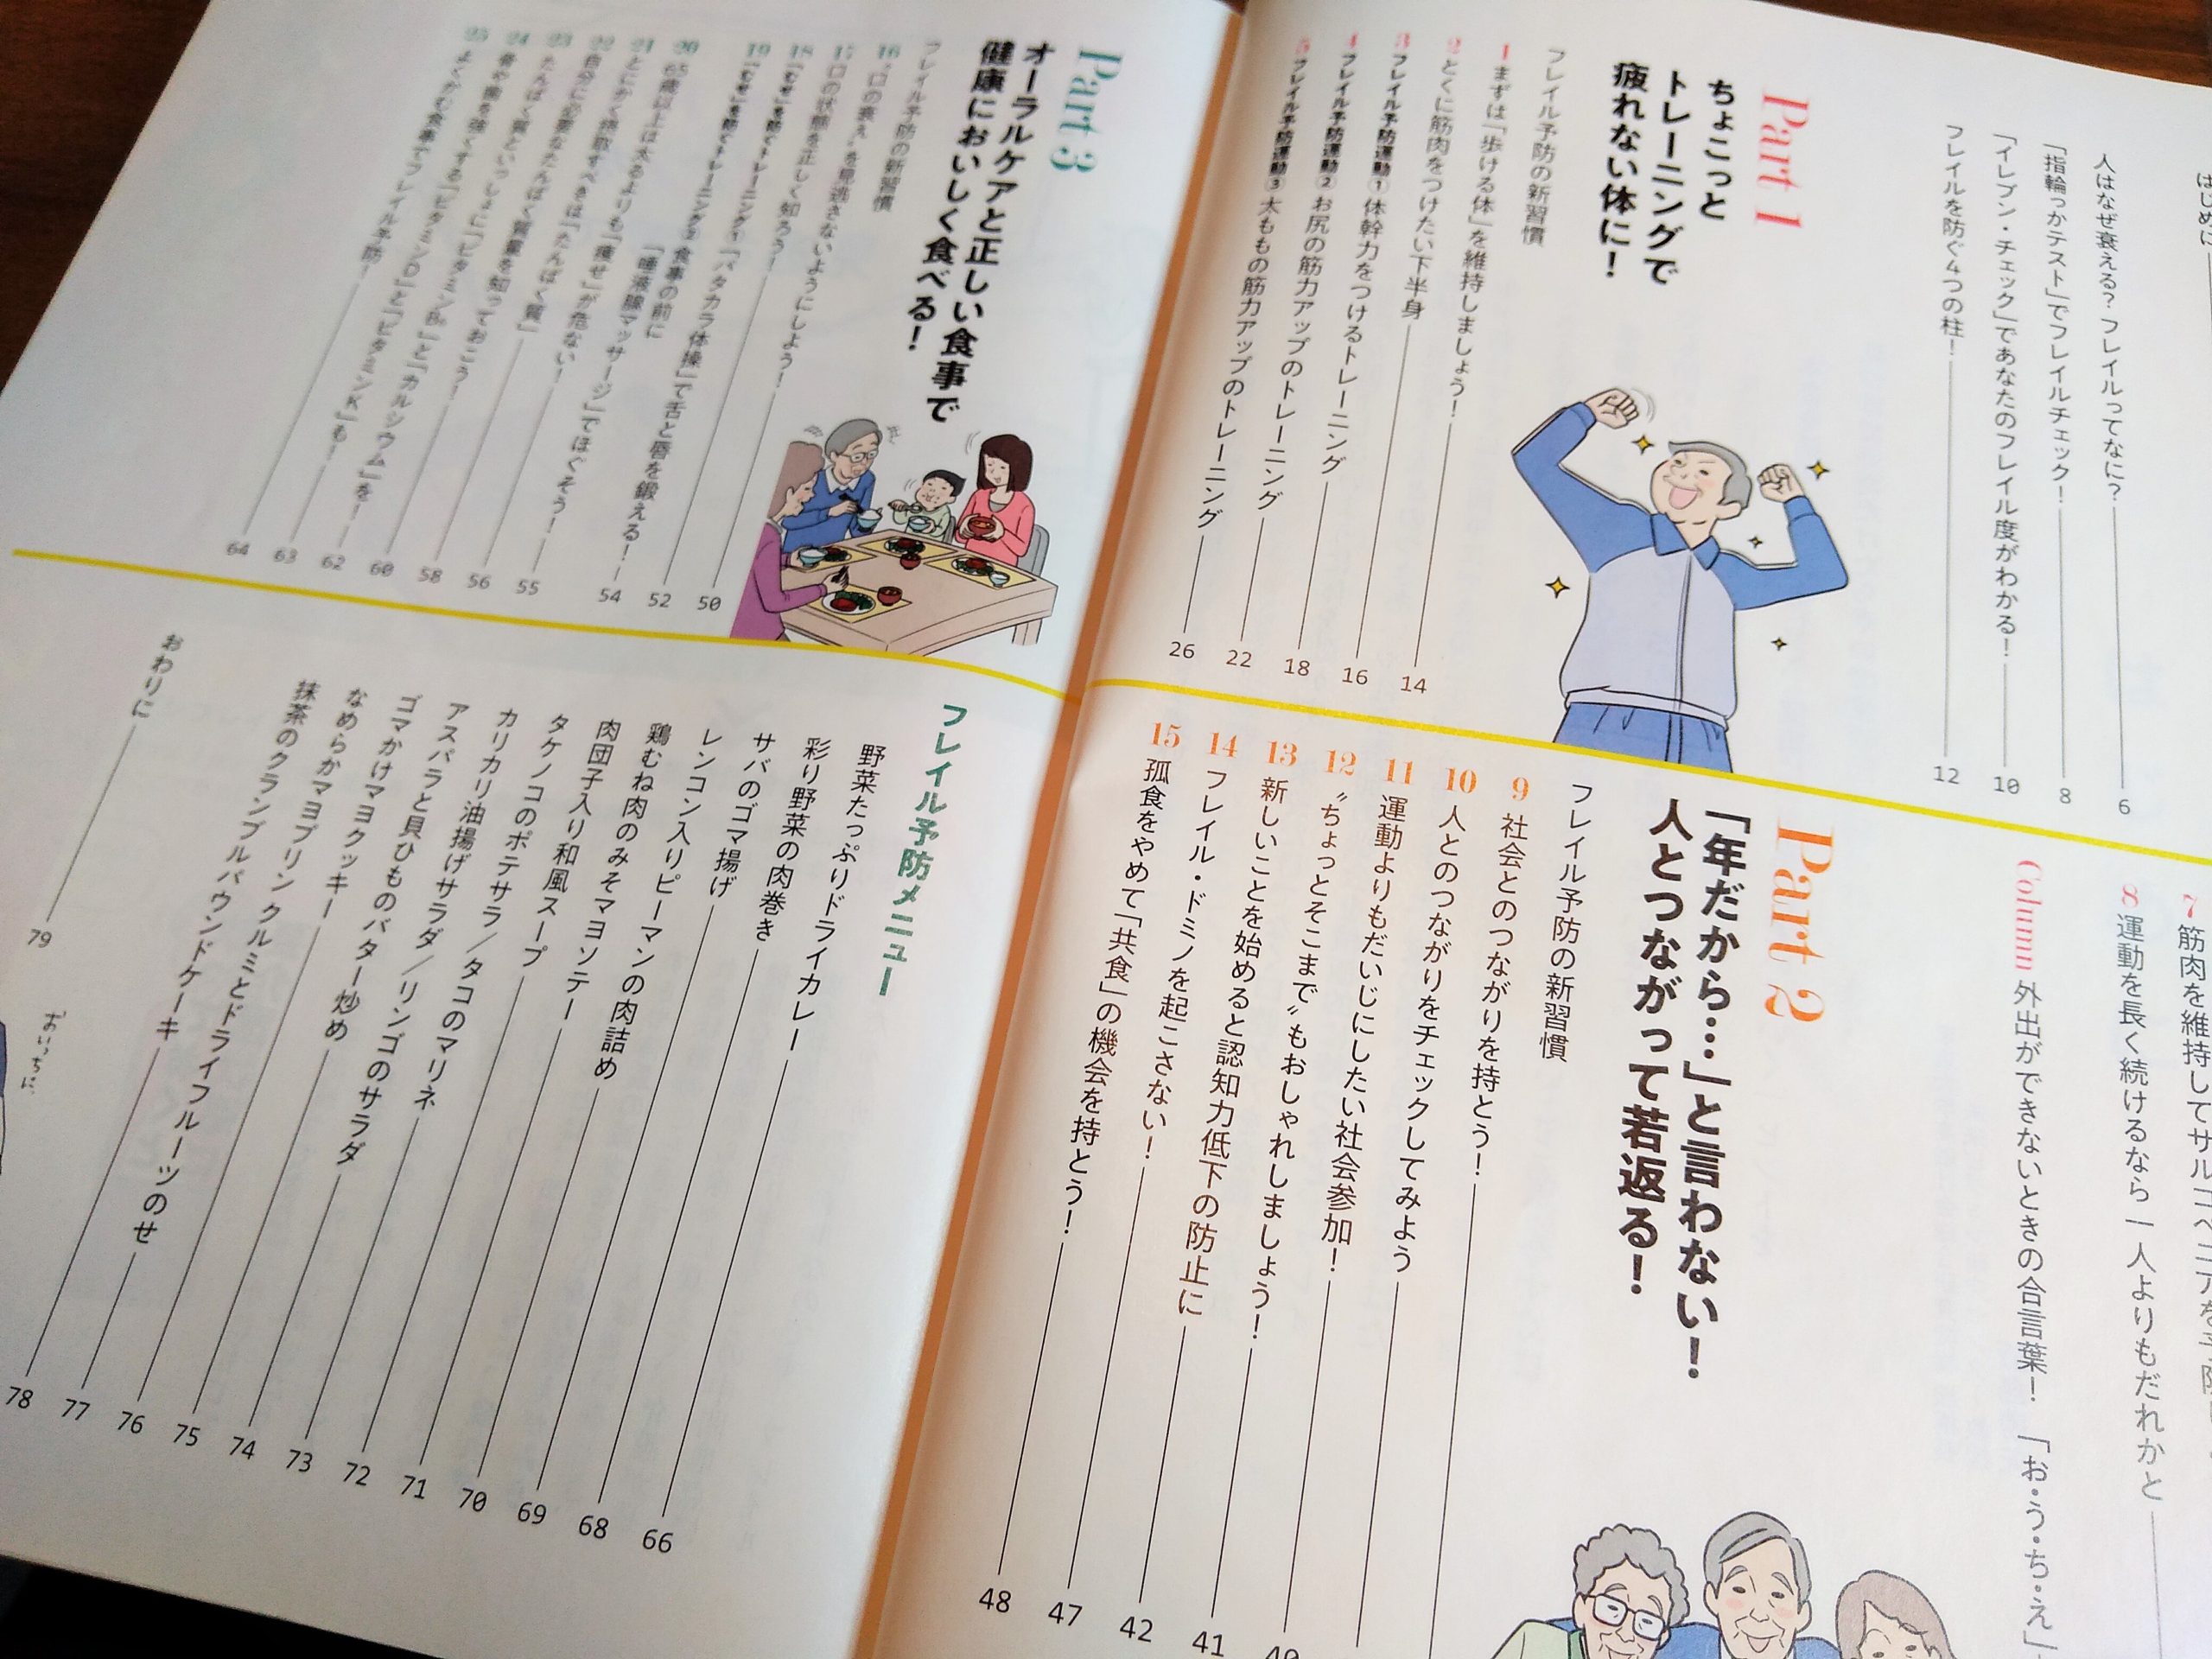 はじめに
人はなぜ衰える?フレイルってなに? 6
「指輪っかテスト」でフレイルチェック! 8
「イレブン・チェック」であなたのフレイル度がわかる! 10
フレイルを防ぐ4つの柱! 12
Part 1
ちょこっと
トレーニングで
疲れない体に!
フレイル予防の新習慣
1 まずは「歩ける体」を維持しましょう! 14
2 とくに筋肉をつけたい下半身 16
3 フレイル予防運動① 体幹力をつけるトレーニング 18
4 フレイル予防運動② お尻の筋力アップのトレーニング 22
5 フレイル予防運動③ 太ももの筋力アップのトレーニング 26
7 筋肉を維持してサルコペニアを予防
8 運動を長く続けるなら一人よりもだれかと
Column 外出ができないときの合言葉!「お・う・ち・え」
Part 2
「年だから…」と言わない!
人とつながって若返る!
フレイル予防の新習慣
9 社会とのつながりを持とう!
10 人とのつながりをチェックしてみよう
11 運動よりもだいじにしたい社会参加! 40
12 〝ちょっとそこまで〟もおしゃれしましょう! 41
13 新しいことを始めると認知力低下の防止に 42
14 フレイル・ドミノを起こさない! 47
15 孤食をやめて「共食」の機会を持とう! 48
Part 3
オーラルケアと正しい食事で
健康においしく食べる!
フレイル予防の新習慣
16 〝口の衰え〟を見逃さないようにしよう! 50
17 口の状態を正しく知ろう! 52
18 「むせ」を防ぐトレーニング① 「パタカラ体操」で舌と唇を鍛える! 54
19 「むせ」を防ぐトレーニング② 食事の前に
「唾液腺マッサージ」でほぐそう! 55
20 65歳以上は太るよりも「痩せ」が危ない! 56
21 とにかく摂取すべきは「たんぱく質」 58
22 自分に必要なたんぱく質量を知っておこう! 60
23 たんぱく質といっしょに「ビタミンB₆」と「カルシウム」を! 62
24 骨や歯を強くする「ビタミンD」と「ビタミンK」も! 63
25 よくかむ食事でフレイル予防! 64
フレイル予防メニュー
野菜たっぷりドライカレー 66
彩り野菜の肉巻き 68
サバのゴマ揚げ 69
レンコン入りピーマンの肉詰め 70
鶏むね肉のみそマヨソテー 71
肉団子入り和風スープ 72
タケノコのポテサラ/タコのマリネ 73
カリカリ油揚げサラダ/リンゴのサラダ 74
アスパラと貝ひものバター炒め 75
ゴマかけマヨクッキー 76
なめらかマヨプリン クルミとドライフルーツのせ 77
抹茶のクランブルパウンドケーキ 78
おわりに 79
おいっちに